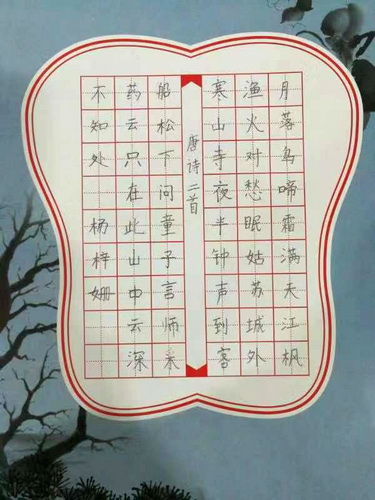 月落鸟啼霜满天江枫
渔火对愁眠姑苏城外
寒山寺夜半钟声到客
唐诗二首
船松下问童子言师采
药云只在此山中云深
不知处 杨梓姗